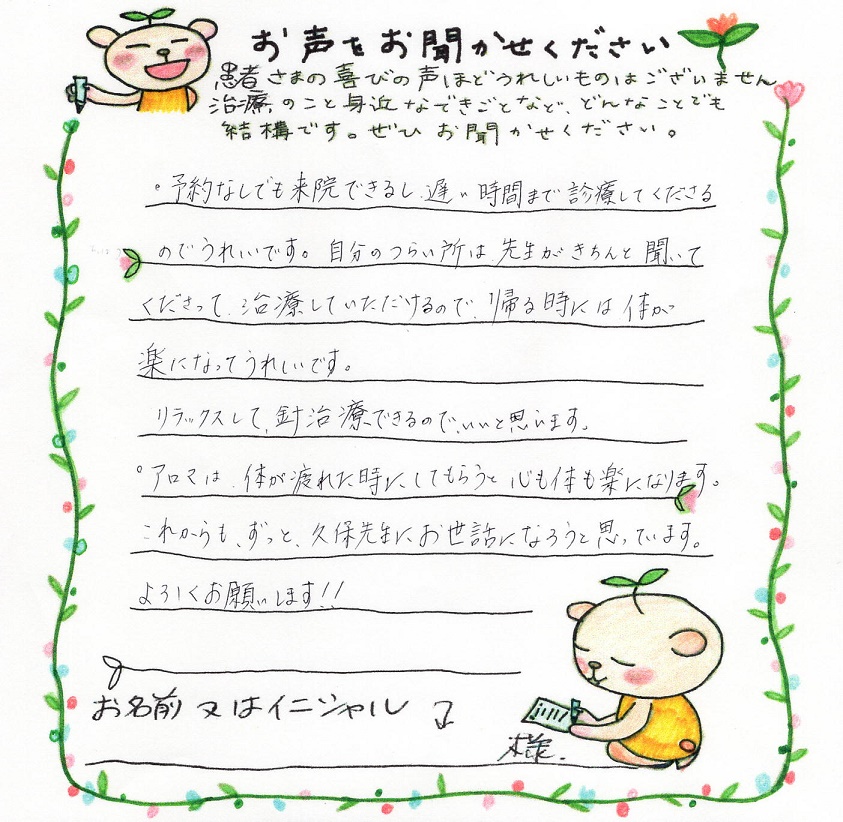 お声をお聞かせください
患者さまの喜びの声ほどうれしいものはございません
治療のこと身近なできごとなど、どんなことでも
結構です。ぜひお聞かせください。
・予約なしでも来院できるし、遅い時間まで診療してくださる
のでうれいです。自分のつらい所は先生がきちんと聞いて
くださって、治療していただけるので、帰る時には体が
楽になってうれしいです。
リラックスして、針治療できるので、いいと思います。
・アロマは、体が疲れた時にしてもらうと心も体も楽になります。
これからも、ずっと、久保先生にお世話になろうと思っています。
よろしくお願いします!!
お名前又はイニシャル
様.